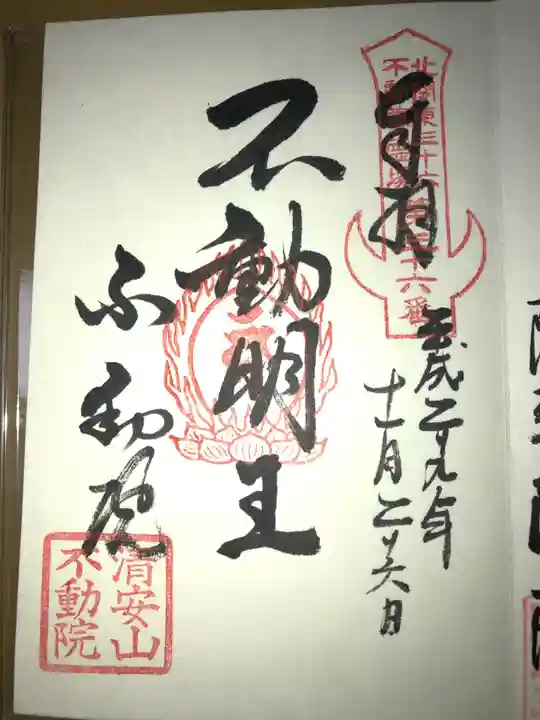 奉拝
北関東三十六
不動尊霊場
第三十六番
平成二十九年
十一月二十六日
不動明王
不動院
清安山
不動院